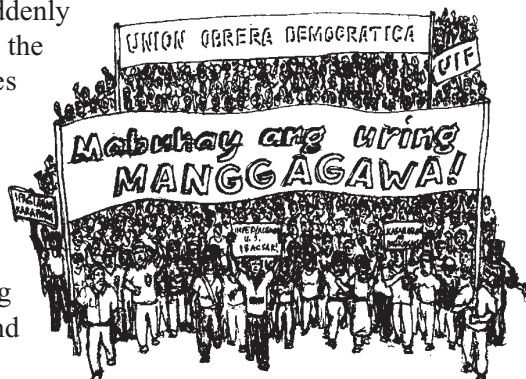 ddenly
the
es
g
nd
UNION OBRERA DEMOCRATICA
UIF
Mabuhay ang uring
MANGGAGAWA!
IMPERYALISMONG
U.S.
IBAGSAK!